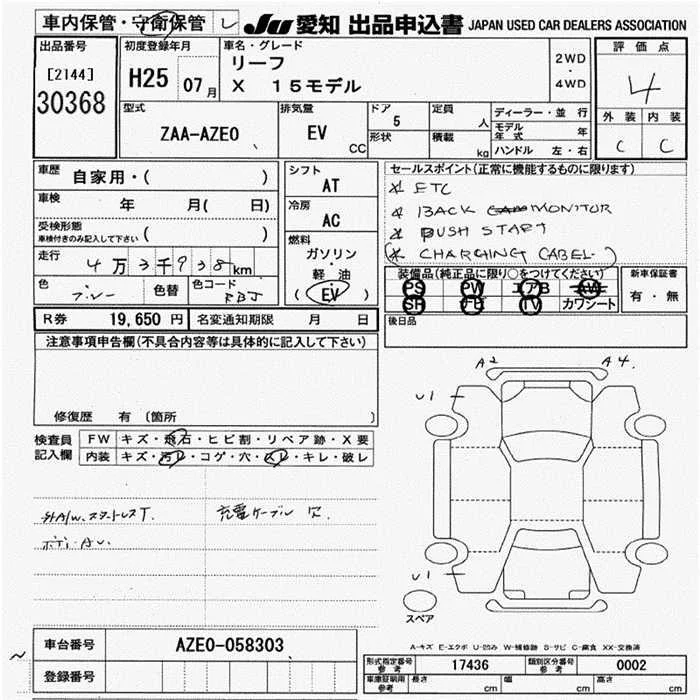 車内保管・守衛保管 レ JU 愛知 出品申込書 JAPAN USED CAR DEALERS ASSOCIATION
出品番号 初度登録年月 車名・グレード 評価点
[2144] H25 07月 リーフ 2WD・4WD 4
30368 X 15モデル
型式 排気量 ドア 定員 ディーラー・並行 外装 内装
ZAA-AZE0 EV CC 5 人 モデル年式 年 C C
形状 積載 kg ハンドル 左・右
車歴 自家用・( ) シフト セールスポイント(正常に機能するものに限ります)
AT * ETC
車検 年 月( 日) 冷房 * BACK MONITOR
AC * PUSH START
受検形態 車検付きのみ記入して下さい ( ) 燃料 (* CHARGING CABEL.)
走行 4万3千938km ガソリン・軽油 装備品(純正品に限り○をつけてください) 新車保証書
色 色替 色コード RBJ (EV) PS PW エアB AW 有・無
SR ナビ TV カワシート
R券 19,650円 名変通知期限 月 日 後日品
注意事項申告欄(不具合内容等は具体的に記入して下さい)
A2 A4
U1
修復歴 有 (箇所 )
検査員記入欄 FW キズ・飛石・ヒビ割・リペア跡・X要
内装 キズ・汚レ・コゲ・穴・スレ・キレ・破レ
外A/W.スタットレスT. 充電ケーブル 欠.
U1
スペア
車台番号 AZE0-058303
A-キズ E-エクボ U-凹み W-補修跡 S-サビ C-腐食 XX-交換済
~ 登録番号 形式指定番号参考 17436 類別区分番号参考 0002
車庫証明用参考 長さ cm 幅 cm 高さ cm